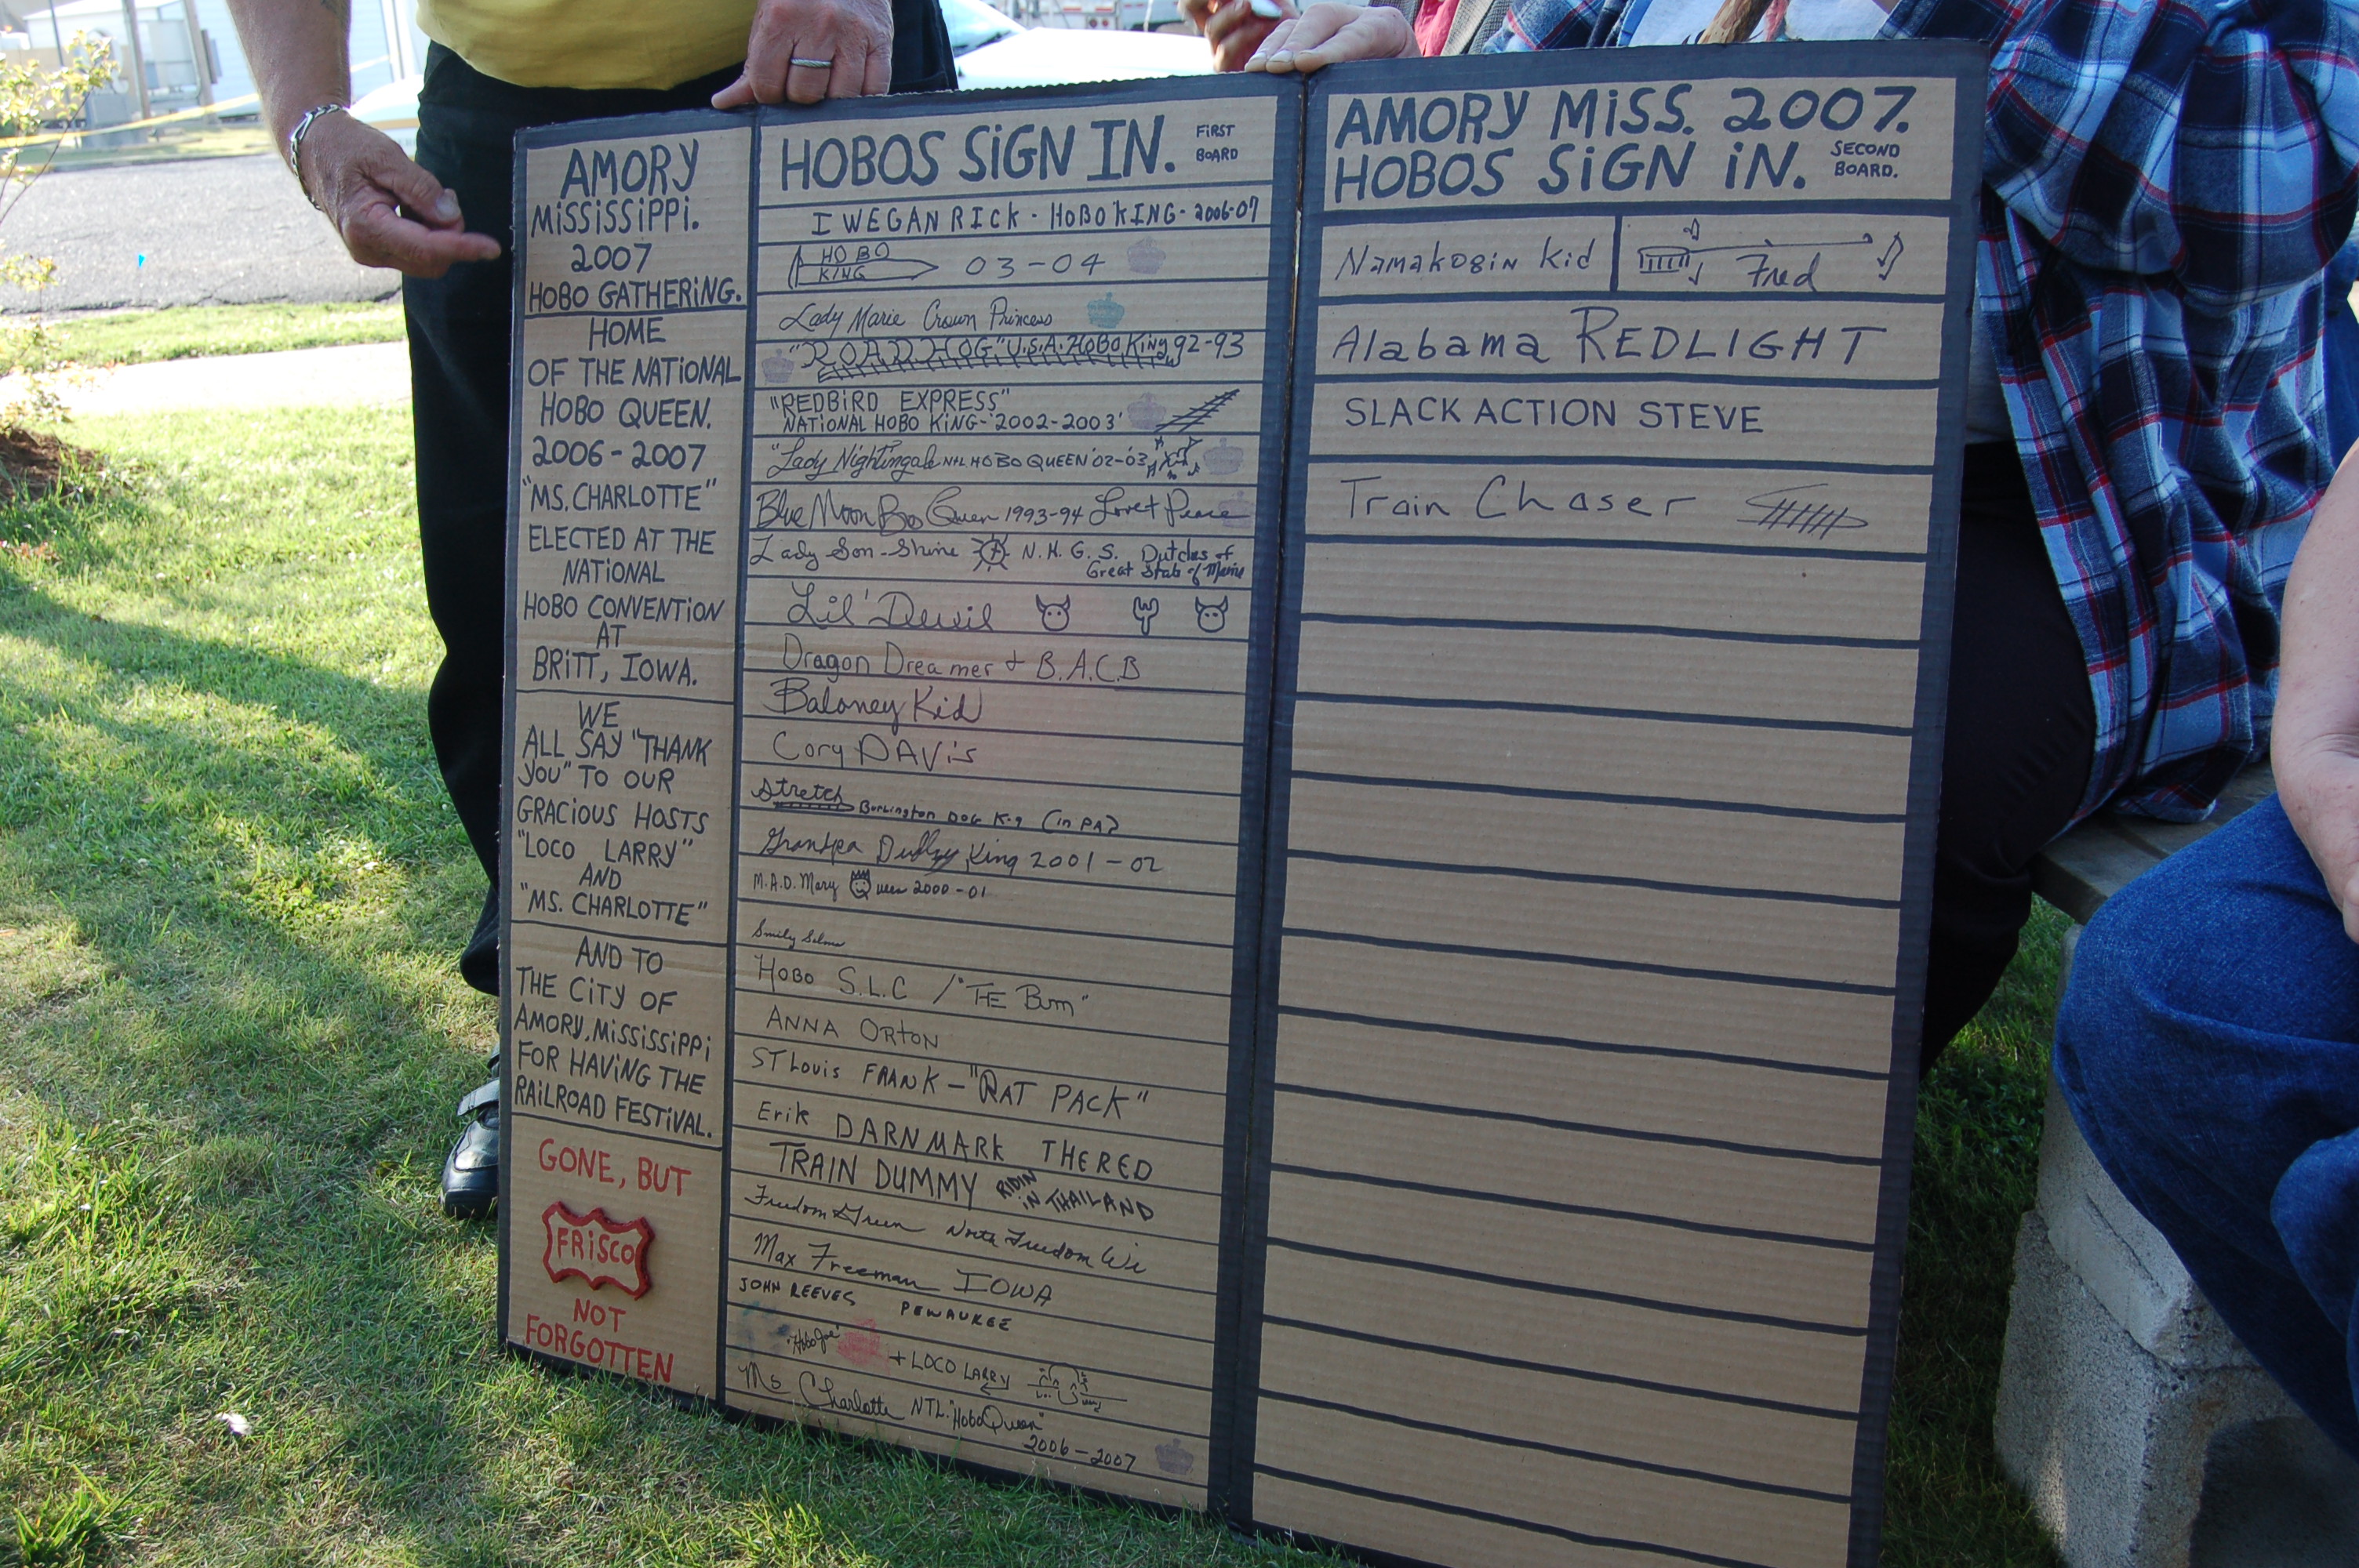 AMORY
MISSISSIPPI.
2007
HOBO GATHERING.
HOME
OF THE NATIONAL
HOBO QUEEN.
2006-2007
"MS. CHARLOTTE"
ELECTED AT THE
NATIONAL
HOBO CONVENTION
AT
BRITT, IOWA.
WE
ALL SAY "THANK
YOU" TO OUR
GRACIOUS HOSTS
"LOCO LARRY"
AND
"MS. CHARLOTTE"
AND TO
THE CITY OF
AMORY, MISSISSIPPI
FOR HAVING THE
RAILROAD FESTIVAL.
GONE, BUT
FRISCO
NOT
FORGOTTEN
HOBOS SIGN IN. FIRST
BOARD
I WEGAN RICK - HOBO KING - 2006-07
HOBO
KING 03-04
Lady Marie Crown Princess
"ROAD HOG" U.S.A. HOBO King 92-93
"REDBIRD EXPRESS"
NATIONAL HOBO KING-'2002-2003'
"Lady Nightingale NTL HOBO QUEEN '02-'03
Blue Moon Bo Queen 1993-94 Love + Peace
Lady Son-Shine N.H.G.S. Dutches of
Great State of Maine
Lil' Devil
Dragon Dreamer + B.A.C.B
Baloney Kid
Cory DAVis
Stretch Burlington DOG K-9 (in PA)
Grandpa Dudley King 2001-02
M.A.D. Mary Queen 2000-01
Smily
HOBO S.L.C / "THE Bum"
ANNA ORTON
ST Louis FRANK - "RAT PACK"
Erik DARNMARK THERED
TRAIN DUMMY RIDIN
IN THAILAND
Freedom Green North Freedom Wi
Max Freeman IOWA
JOHN REEVES PEWAUKEE
"Hobo Joe" + LOCO LARRY
Ms Charlotte NTL. "Hobo Queen"
2006-2007
AMORY MISS. 2007.
HOBOS SIGN IN. SECOND
BOARD.
Namakogin Kid
Fred
Alabama REDLIGHT
SLACK ACTION STEVE
Train Chaser